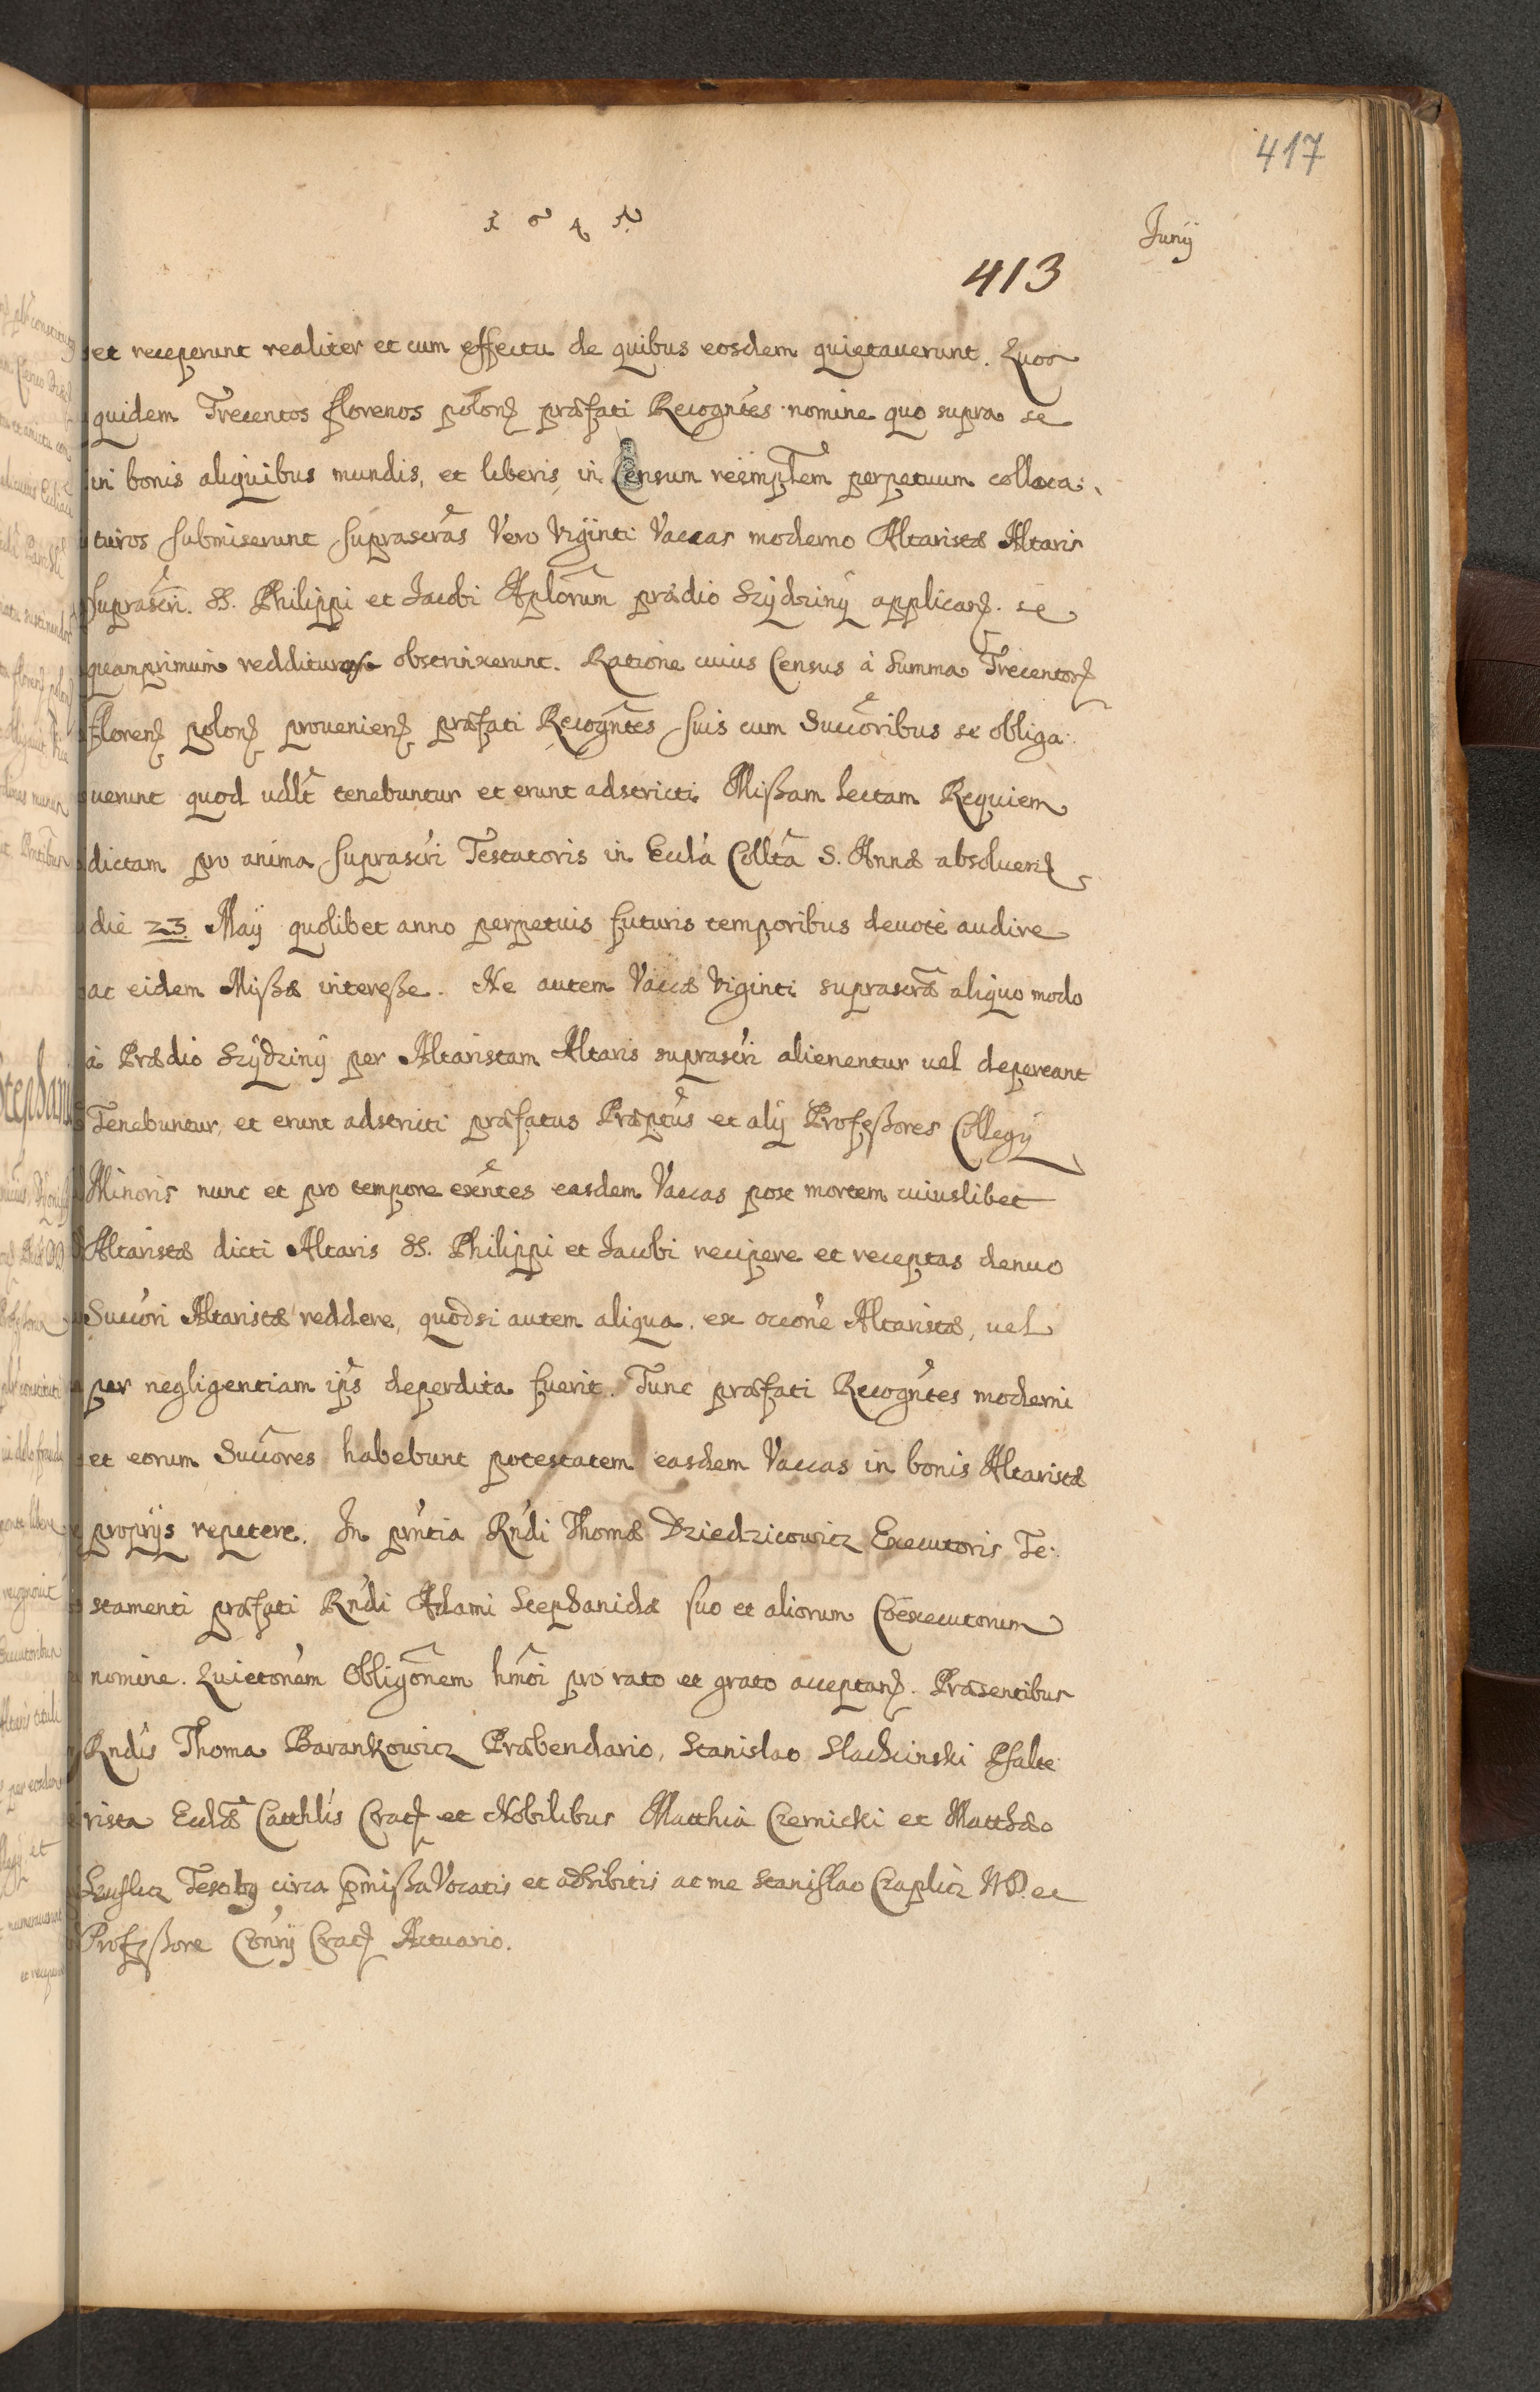 417
1647
Junÿ
413
et receperunt realiter et cum effectu de quibus eosdem quietauerunt. Quos
quidem Trecentos florenos polon præfati Recogntes nomine quo supra se
in bonis aliquibus mundis, et liberis, in Censum reemptlem perpetuum colloca
turos submiserunt suprascras Vero Viginti Vaccas moderno Altaristæ Altaris
suprascri. SS. Philippi et Jacobi Aplorum prædio Szÿdziny applican. se
quamprimum reddituros obstrinxerunt. Ratione cuius Census à Summa Trecentor
floren polon prouenien præfati Recogntes suis cum Succoribus se obliga
uerunt quod udlt tenebuntur et erunt adstricti Missam lectam Requiem
dictam pro anima suprascri Testatoris in Eccla Collta S. Annæ absoluen
die 23 Maÿ quolibet anno perpetuis futuris temporibus deuotè audire
ac eidem Missæ interesse. Ne autem Vaccæ Viginti suprascræ aliquo modo
à Prædio Szÿdziny per Altaristam Altaris suprascri alienentur uel depereant
Tenebuntur, et erunt adstricti præfatus Præptus et alÿ Professores Collegÿ
Minoris nunc et pro tempore exntes easdem Vaccas post mortem cuiuslibet
Altaristæ dicti Altaris SS. Philippi et Jacobi recipere et receptas denuo
Succori Altaristæ reddere, quodsi autem aliqua ex occone Altaristæ, uel
per negligentiam ips deperdita fuerit. Tunc præfati Recogntes moderni
et eorum Succores habebunt potestatem easdem Vaccas in bonis Altaristæ
proprÿs repetere. In pntia Rndi Thomæ Dziedzicowicz Executoris Te
stamenti præfati Rndi Adami Stephanidæ suo et aliorum Coexecutorum
nomine. Quietonem Obligonem hmoi pro rato et grato acceptan. Præsentibus
Rndis Thoma Barankowicz Præbendario, Stanislao Slachcinski Psalte
rista Ecclæ Cathlis Crac et Nobilibus Matthia Czernicki et Matthæo
Testibus circa præmissa Vocatis et adhibitis ac me Stanislao Czaplic et
Professore Conrÿ Crac Actuario.